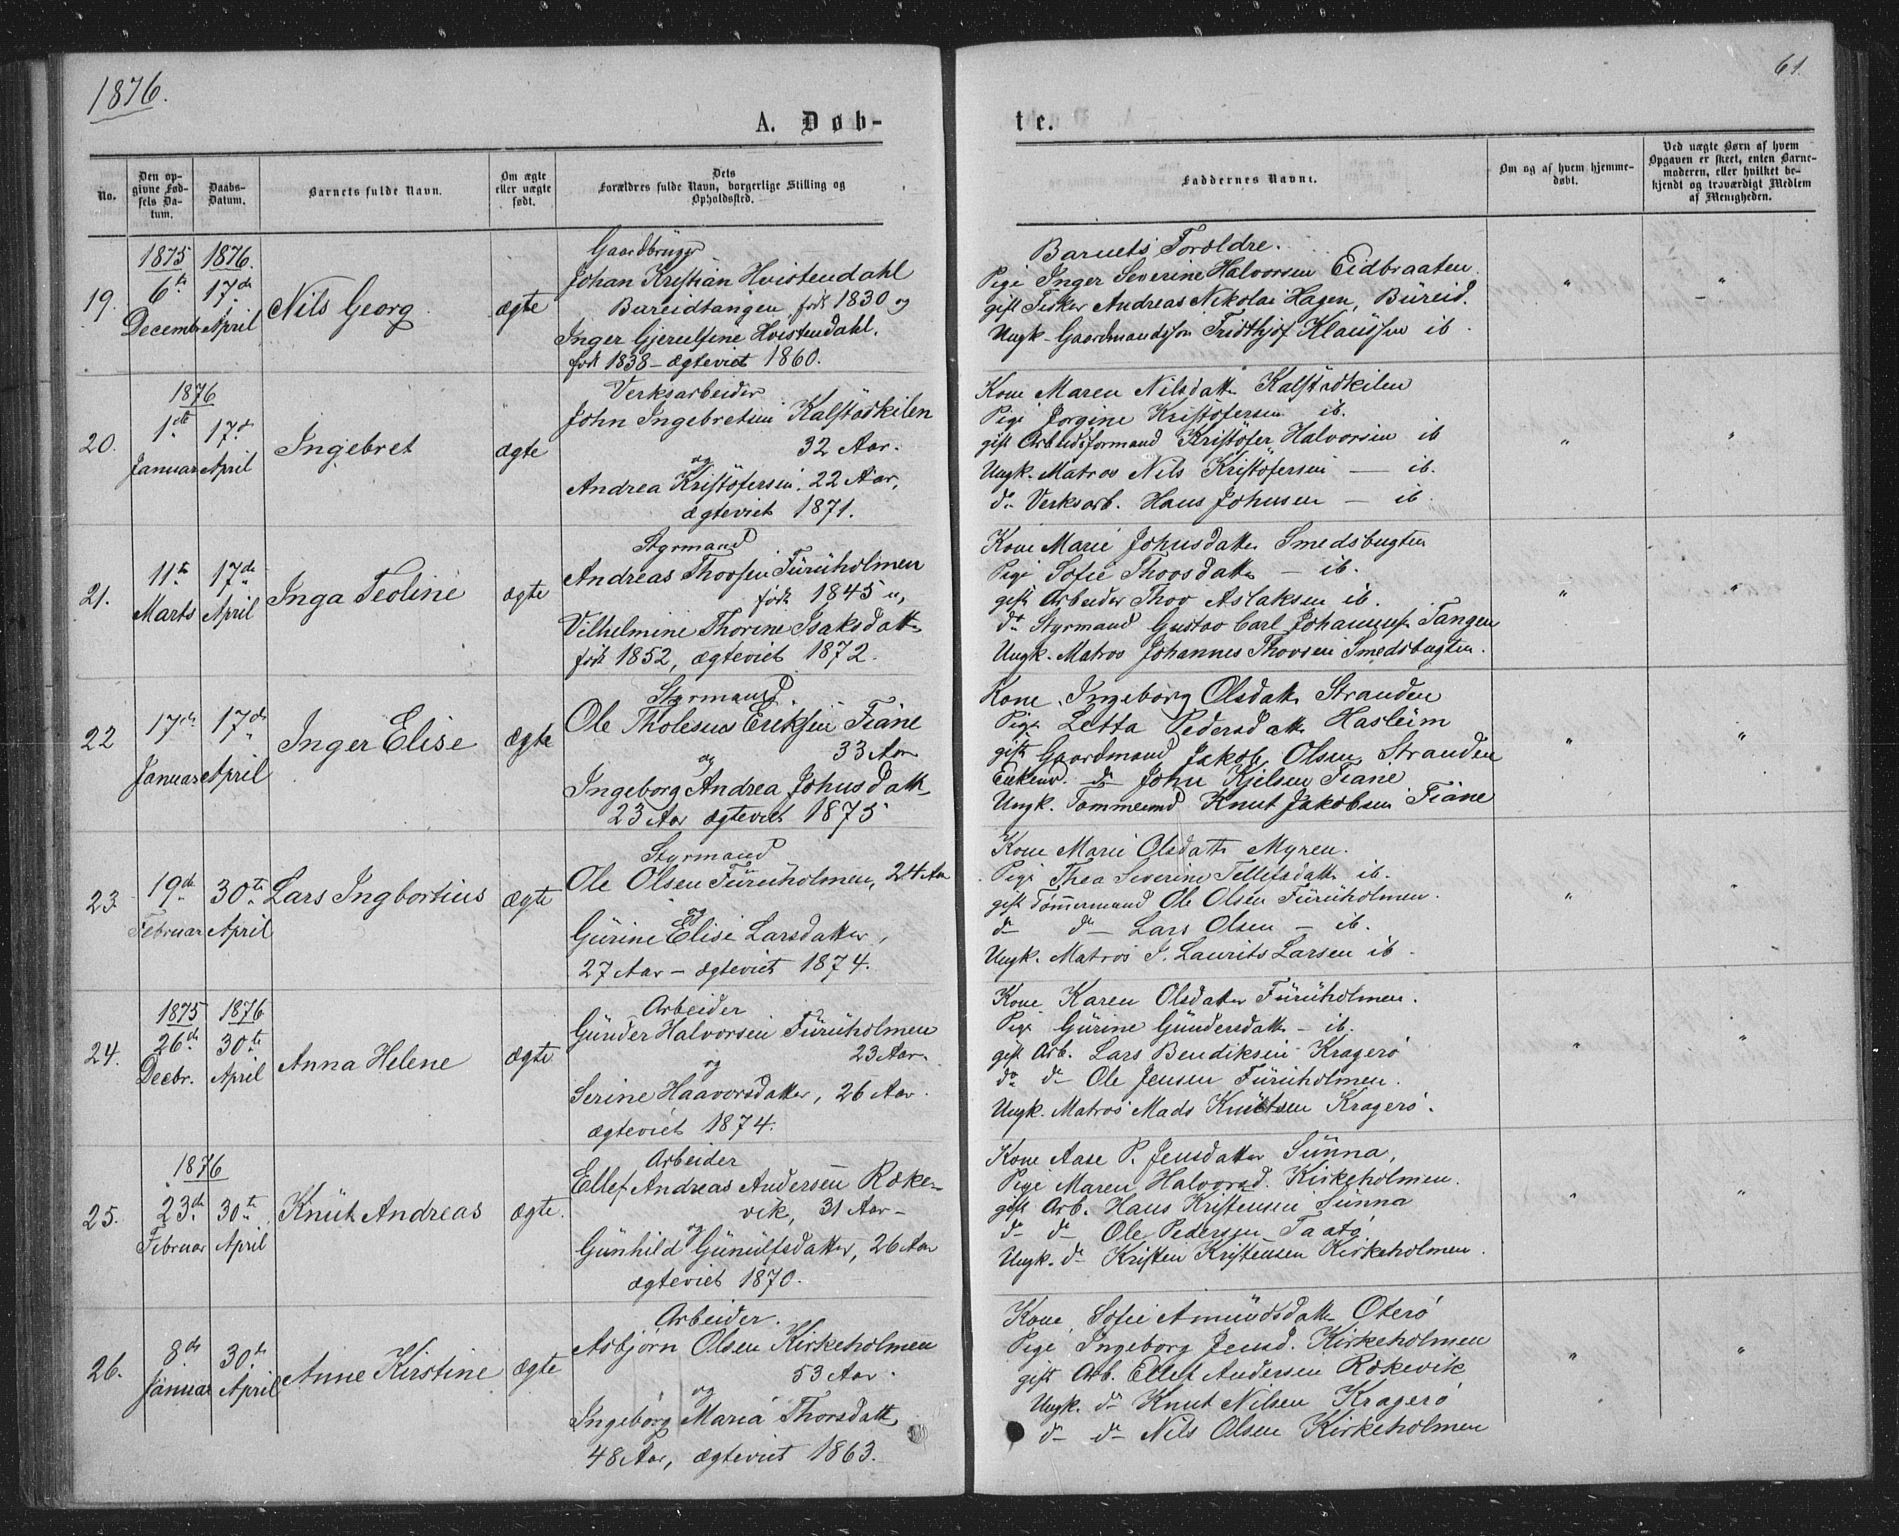 1876.
61.
A. Døb-
te.
No.
Den opgivne Fødsels Datum.
Daabs-Datum.
Barnets fulde Navn.
Om ægte eller uægte født.
Dets Forældres fulde Navn, borgerlige Stilling og Opholdssted.
Faddernes Navne.
Om og af hvem hjemmedøbt.
Ved uægte Børn af hvem Opgaven er skeet, enten Barnemoderen, eller hvilket bekjendt og troværdigt Medlem af Menigheden.
19.
1875
6te
Decembr
1876.
17de
April
Nils Georg
ægte
Gaardbruger
Johan Kristian Hvistendahl
Bureidtangen, født 1830 og
Inger Gjerulfine Hvistendahl.
født 1838 - ægteviet 1860.
Barnets Forældre.
Pige Inger Severine Halvorsen Eidbraaten.
gift Fisker Andreas Nikolai Hagen, Büreid.
Ungk. Gaardmandssøn Fridthjof Klaussen ib.
" "
20.
1876
1ste
Januar
17de
April
Ingebret
ægte
Verksarbeider
John Ingebretsen Kalstadkilen
32 Aar.
og
Andrea Kristofersen. 22 Aar,
ægteviet 1871.
Kone Maren Nilsdattr Kalstadkilen
Pige Jorgine Kristofersen ib.
gift Arbeidsformand Kristofer Halvorsen ib
Ungk. Matros Nils Kristofersen — ib.
do Verksarb. Hans Johnsen — ib.
" "
21.
11te
Marts
17de
April
Inga Teoline
ægte
Styrmand
Andreas Thorsen Furuholmen
født 1845 u,
Vilhelmine Thorine Isaksdattr
født 1852, ægteviet 1872.
Kone Marie Johnsdattr Smedsbugten
Pige Sofie Thorsdattr — ib.
gift Arbeider Thor Aslaksen ib.
do Styrmand Gustav Carl Johannes. Tangen
Ungk. Matros Johannes Thorsen Smedsbugten.
" "
22
17de
Januar
17de
April
Inger Elise
ægte
Styrmand.
Ole Tholesius Eriksen Fiane
33 Aar
og
Ingeborg Andrea Johnsdattr
23 Aar ægteviet 1875
Kone Ingeborg Olsdattr Stranden
Pige Letta Pedersdattr Hasleim
gift Gaardmand Jakob Olsen Stranden
Enkem. do John Kjelsen Fiane
Ungk. Tømmermd Knut Jakobsen Fiane
" "
23.
19de
Februar
30te
April
Lars Ingbortius
ægte
Styrmand
Ole Olsen Furuholmen, 24 Aar
og
Gurine Elise Larsdatter,
27 Aar — ægteviet 1874.
Kone Marie Olsdattr Myren.
Pige Thea Severine Tellefsdattr ib.
gift Tømmermand Ole Olsen Furuholmen.
do do — Lars Olsen — ib.
Ungk. Matros J. Laurits Larsen ib
" "
24.
1875
26de
Decbr.
1876
30te
April
Anna Helene
ægte
Arbeider
Gunder Halvorsen Furuholmen
23 Aar.
og
Serine Haavorsdatter, 26 Aar.
ægteviet 1874.
Kone Karen Olsdatter Furuholmen.
Pige Gurine Gundersdattr — ib.
gift Arb. Lars Bendiksen Kragerø
do do Ole Jensen Furuholmen.
Ungk. Matros Mads Knutsen Kragerø.
" "
25.
1876
23de
Februar
30te
April
Knut Andreas
ægte.
Arbeider
Ellef Andreas Andersen Røke-
vik, 31 Aar —
og
Gunhild Gunulfsdatter, 26 Aar
ægteviet 1870.
Kone Aase P. Jensdatter Sunna,
Pige Maren Halvorsd. Kirkeholmen.
gift Arb. Hans Kristensen Sunna
do do Ole Pedersen Taatø,
Ungk. do Kristen Kristensen Kirkeholmen.
" "
26.
8de
Januar
30te
April
Anne Kirstine
ægte
Arbeider.
Asbjørn Olsen Kirkeholmen
53 Aar.
og
Ingeborg Maria Thorsdattr
48 Aar, ægteviet 1863.
Kone Sofie Amundsdattr Oterø
Pige Ingeborg Jensd. Kirkeholmen
gift Arb. Ellef Andersen Røkevik
Ungk. do Knut Nilsen Kragerø
do do Nils Olsen Kirkeholmen
" "